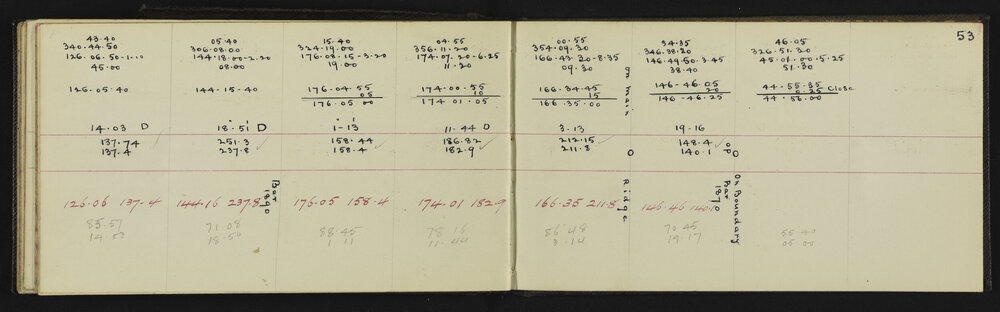 53
43.40
340.44.50
126.06.50-1.10
45.00
126.05.40
14.03 D
137.74
137.4
126.06 137.4
85.57
14.03
05.40
306.08.00
144.18.00-2.20
08.00
144.15.40
18.51 D
251.3
237.8
144.16 237.8
Bar 1890
71.08
18.50
15.40
324.19.00
176.08.15-3.20
19.00
176.04.55
05
176.05.00
1-13
158.44
158.4
176.05 158.4
88.45
1 11
04.55
356.11.20
174.07.20-6.25
11.20
174.00.55
10
174 01.05
11.44 D
186.82
182.9
174.01 182.9
78 16
11.44
00.55
354.09.30
166.43.20-8.35
09.30
166.34.45
15
166.35.00
3.13
212.15
211.8
166.35 211.8
86.48
3.14
on Main O Ridge
34.35
346.38.20
146.49.50-3.45
38.40
146-46.05
20
146-46.25
19.16
148.4
140.1
146.46 140.10
70 45
19.17
op O
Bar 1870
On Boundary
46.05
326.51.20
45.01.00-5.25
51.30
44.55.35 Close
0.25
44.56.00
55 40
05 00